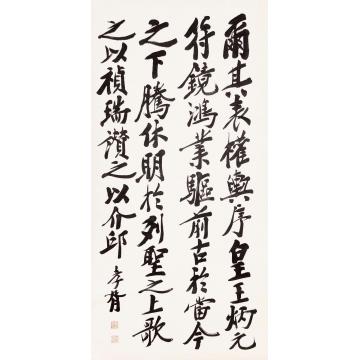 爾其表權輿序皇王炳元
符鏡鴻業驅前古於當今
之下騰休明於列聖之上歌
之以禎瑞讚之以介邱 孝胥